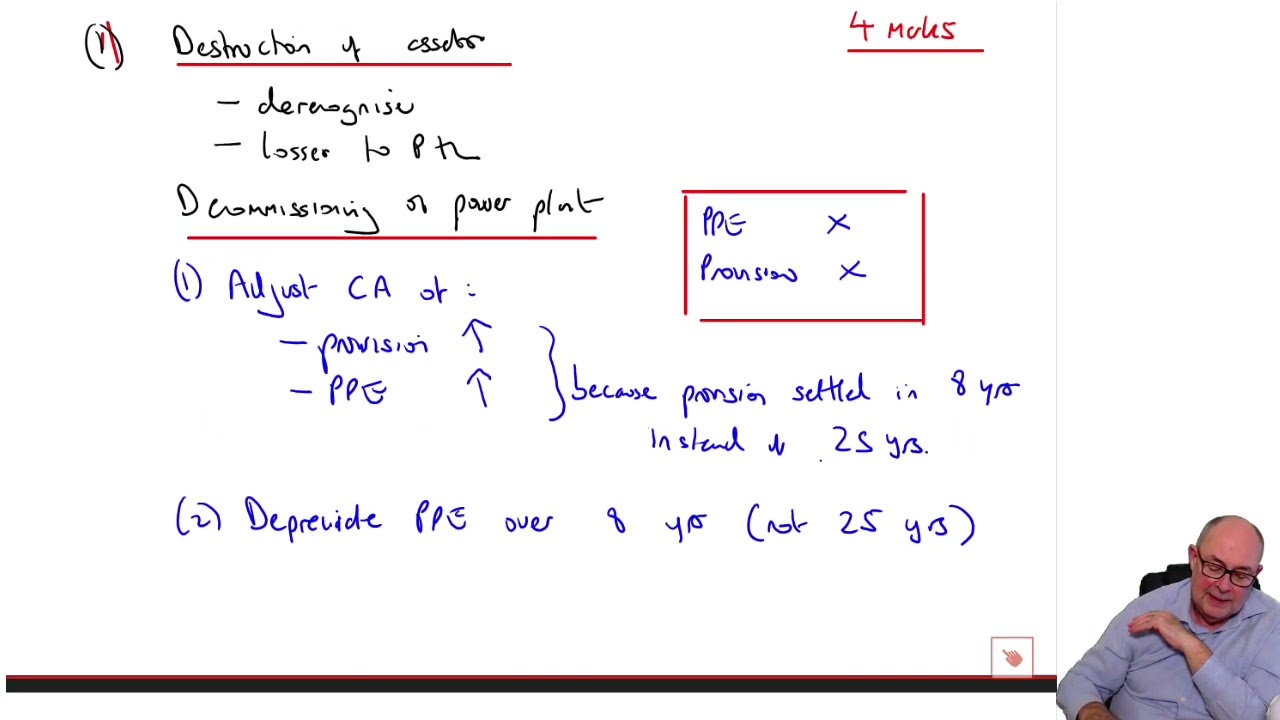 (1) Destruction of assets
4 marks
- derecognise
- losses to P+L
Decommissioning of power plant
PPE X
Provision X
(1) Adjust CA of :
- provision ↑
- PPE ↑
because provision settled in 8 yrs
instead of 25 yrs.
(2) Depreciate PPE over 8 yrs (not 25 yrs)